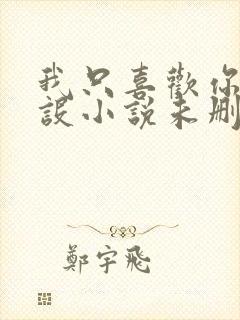 我只喜歡你
設小說未刪
鄭宇飛